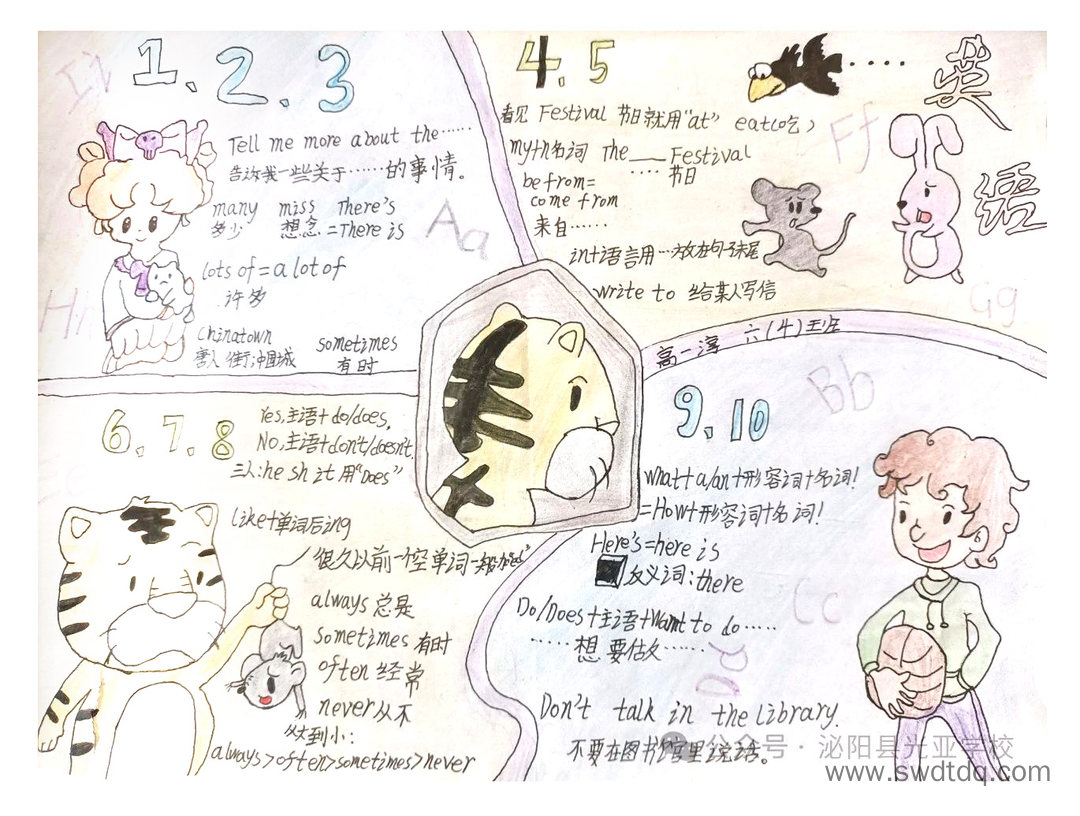 1.2.3
Tell me more about the……
告诉我一些关于……的事情。
many miss There's
多少 想念 =There is
lots of = a lot of
许多
Chinatown sometimes
唐人街;中国城 有时
Aa
Hh
4.5
....
英
语
看见 Festival 节日就用"at" eat(吃)
my+n名词 The ___ Festival
.... 节日
be from=
come from
来自……
in+语言用…放在句子末尾
write to 给某人写信
Ff
Gg
六(4)班
6.7.8
Yes,主语+do/does,
No,主语+don't/doesn't.
三人:he sh it 用"Does"
like+单词后ing
很久以前一个空单词一般加ed
always 总是
sometimes 有时
often 经常
never 从不
从大到小:
always>often>sometimes>never
9,10
Bb
what+a/an+形容词+名词!
=How+形容词+名词!
Here's=here is
反义词:there
Do/Does+主语+Want to do.....
……想要做……
Cc
Dd
Don't talk in the library.
不要在图书馆里说话。
公众号·泌阳县光亚学校
www.swdtdq.com